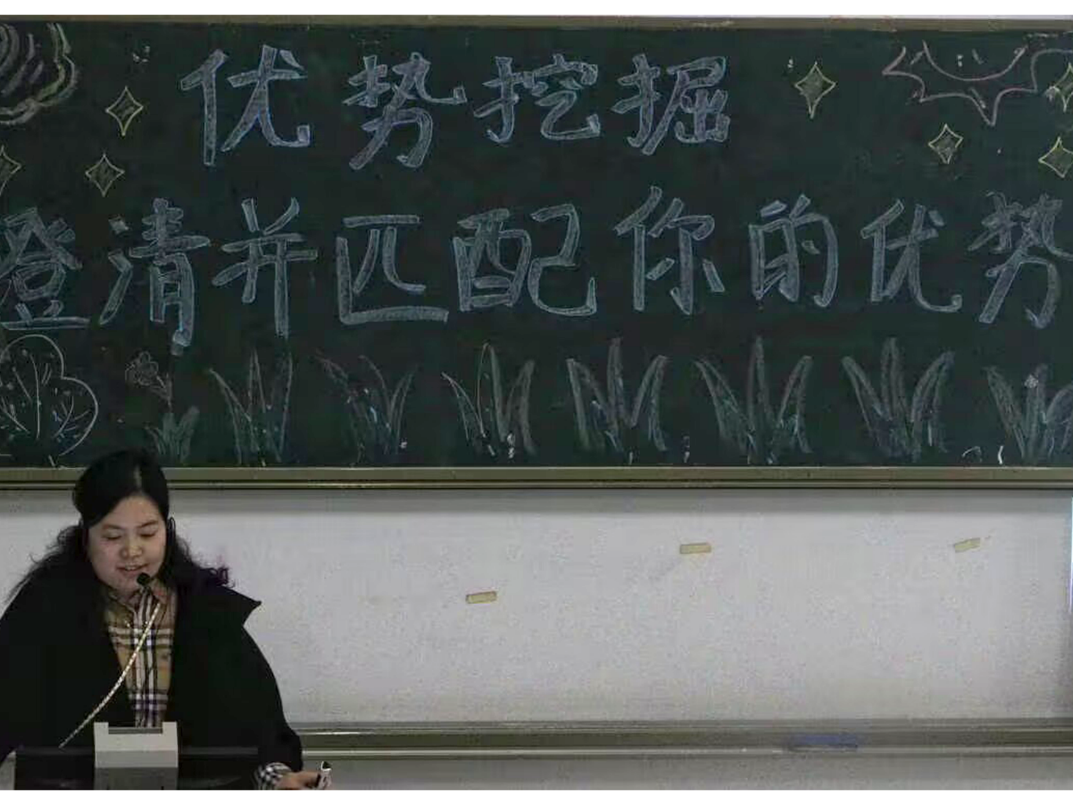 优势挖掘
澄清并匹配你的优势